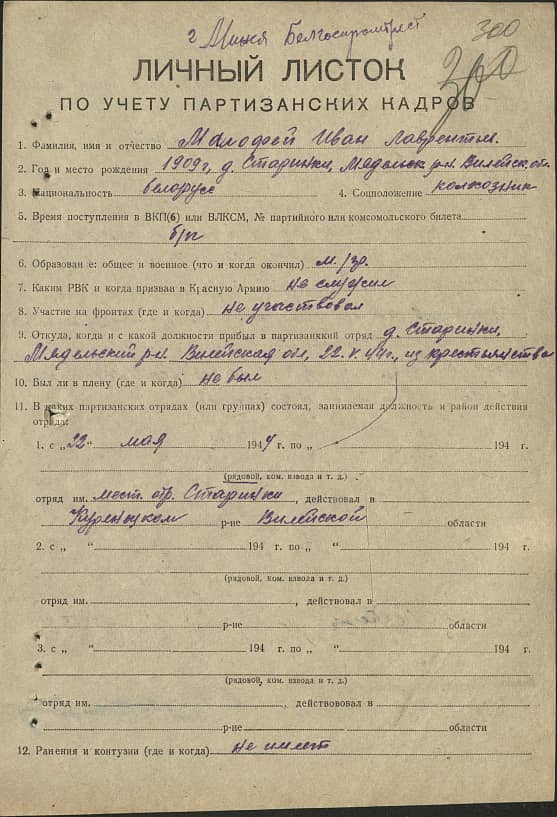 г Минск Белгоспромтрест 300
300
ЛИЧНЫЙ ЛИСТОК
ПО УЧЕТУ ПАРТИЗАНСКИХ КАДРОВ
1. Фамилия, имя и отчество Малофей Иван Лаврентьев.
2. Год и место рождения 1909 г, д. Старинки, Мядельск. р-н. Вилейск. обл.
3. Национальность белорусс 4. Соцположение колхозник
5. Время поступления в ВКП(б) или ВЛКСМ, № партийного или комсомольского билета
б/п
6. Образование: общее и военное (что и когда окончил) м./гр.
7. Каким РВК и когда призван в Красную Армию не служил
8. Участие на фронтах (где и когда) не участвовал
9. Откуда, когда и с какой должности прибыл в партизанккий отряд д. Старинки,
Мядельский р-н. Вилейская обл, 22.V.44 г., из крестьянства
10. Был ли в плену (где и когда) не был
11. В каких партизанских отрядах (или группах) состоял, занимаемая должность и район действия
отряда:
1. с „22" мая 1944 г. по „ 194 г.
(рядовой, ком. взвода и т. д.)
отряд им. мест. отр. Старинки, действовал в
Куренецком р-не Вилейской области
2. с „ " 194 г. по „ " 194 г.
(рядовой, ком. взвода и т. д.)
отряд им. , действовал в
р-не области
3. с „ " 194 г. по „ " 194 г.
(рядовой, ком. взвода и т. д.)
отряд им. , действововал в
р-не области
12. Ранения и контузии (где и когда) не имеет